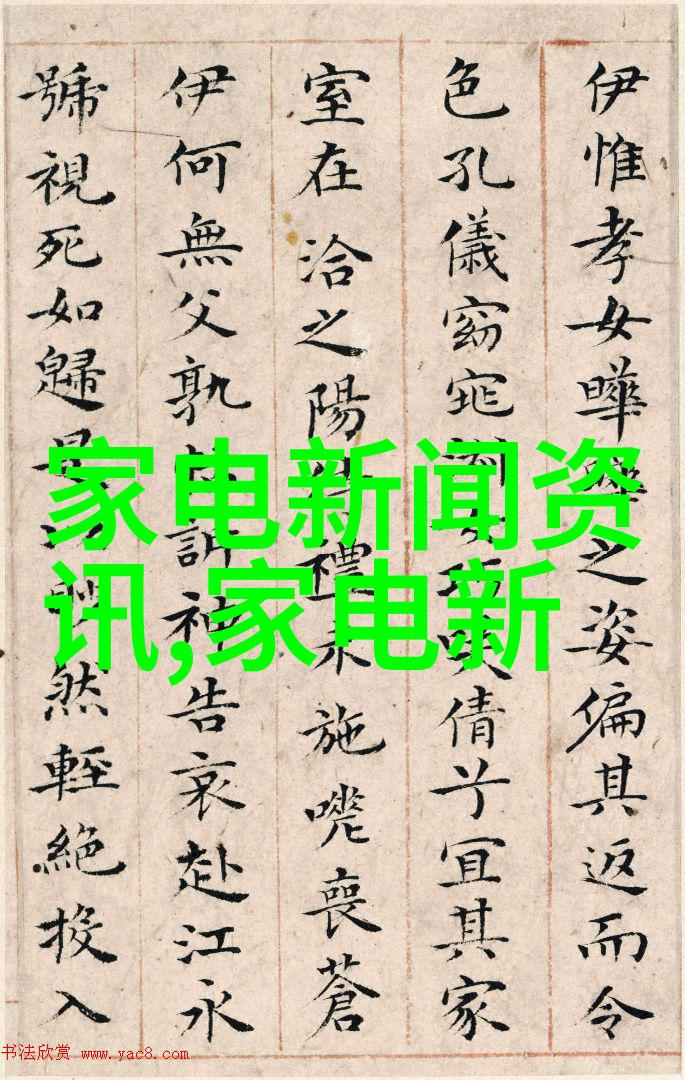 伊惟孝女曄曄之姿偏其返而令
色孔儀窈窕淑女巧咲倩兮宜其家
室在洽之陽待禮未施嗟喪蒼
伊何無父孰怙訴神告哀赴江永
號視死如歸是以眇然輕絕投入
家电新闻资
讯,家电新
书法欣赏 www.yac8.com